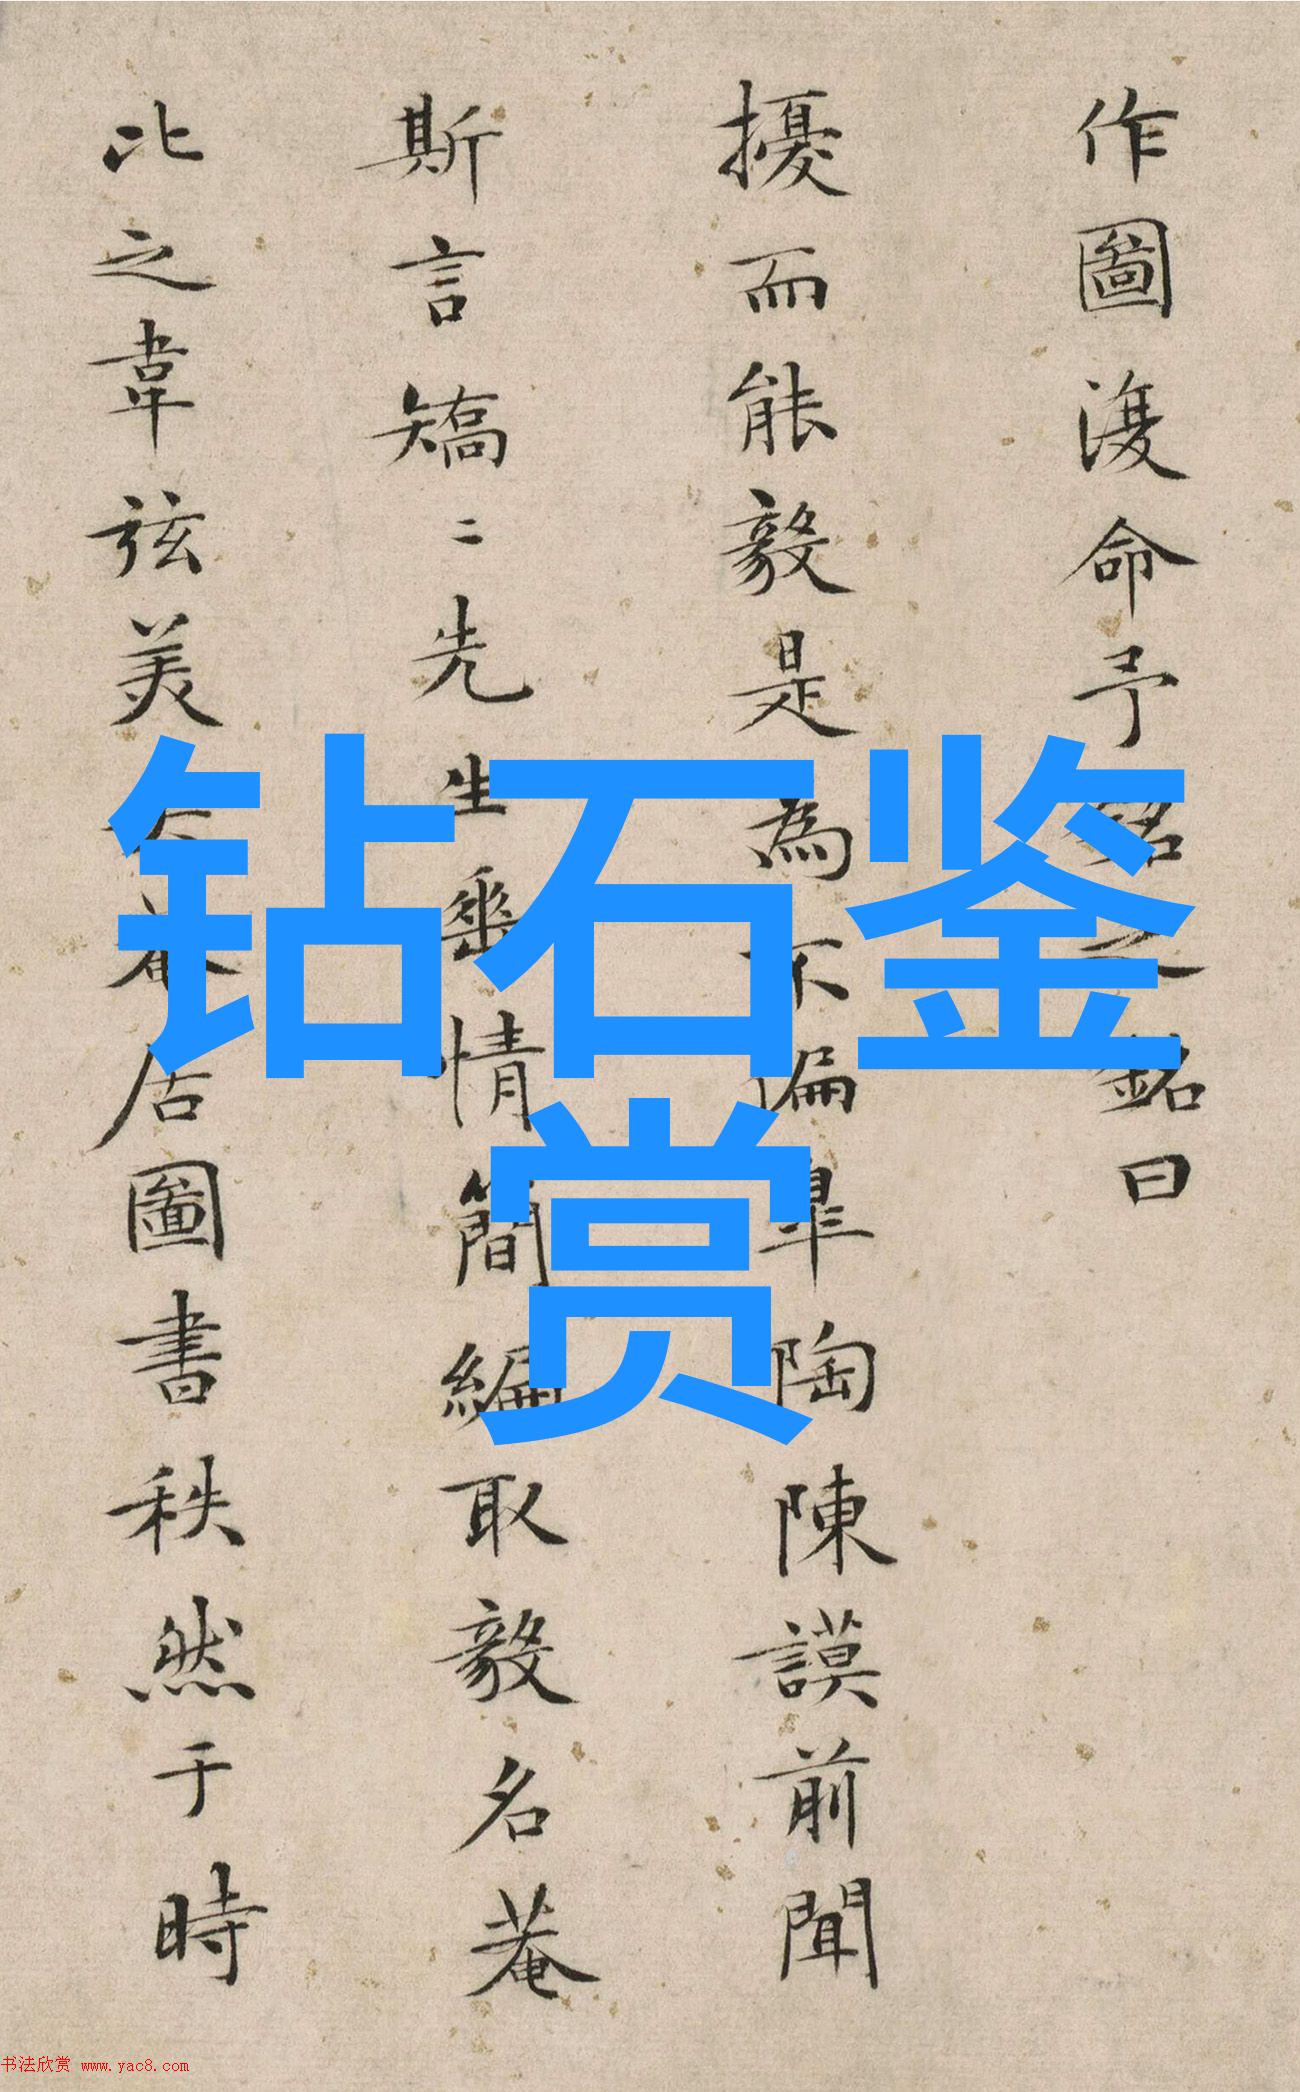 作圖復命予銘之銘曰
擾而能毅是為不偏皋陶陳謨前聞
斯言矯二先生垂情簡編取毅名菴
比之韋弦美居圖書秩然于時
钻石鉴
赏
书法欣赏 www.yac8.com